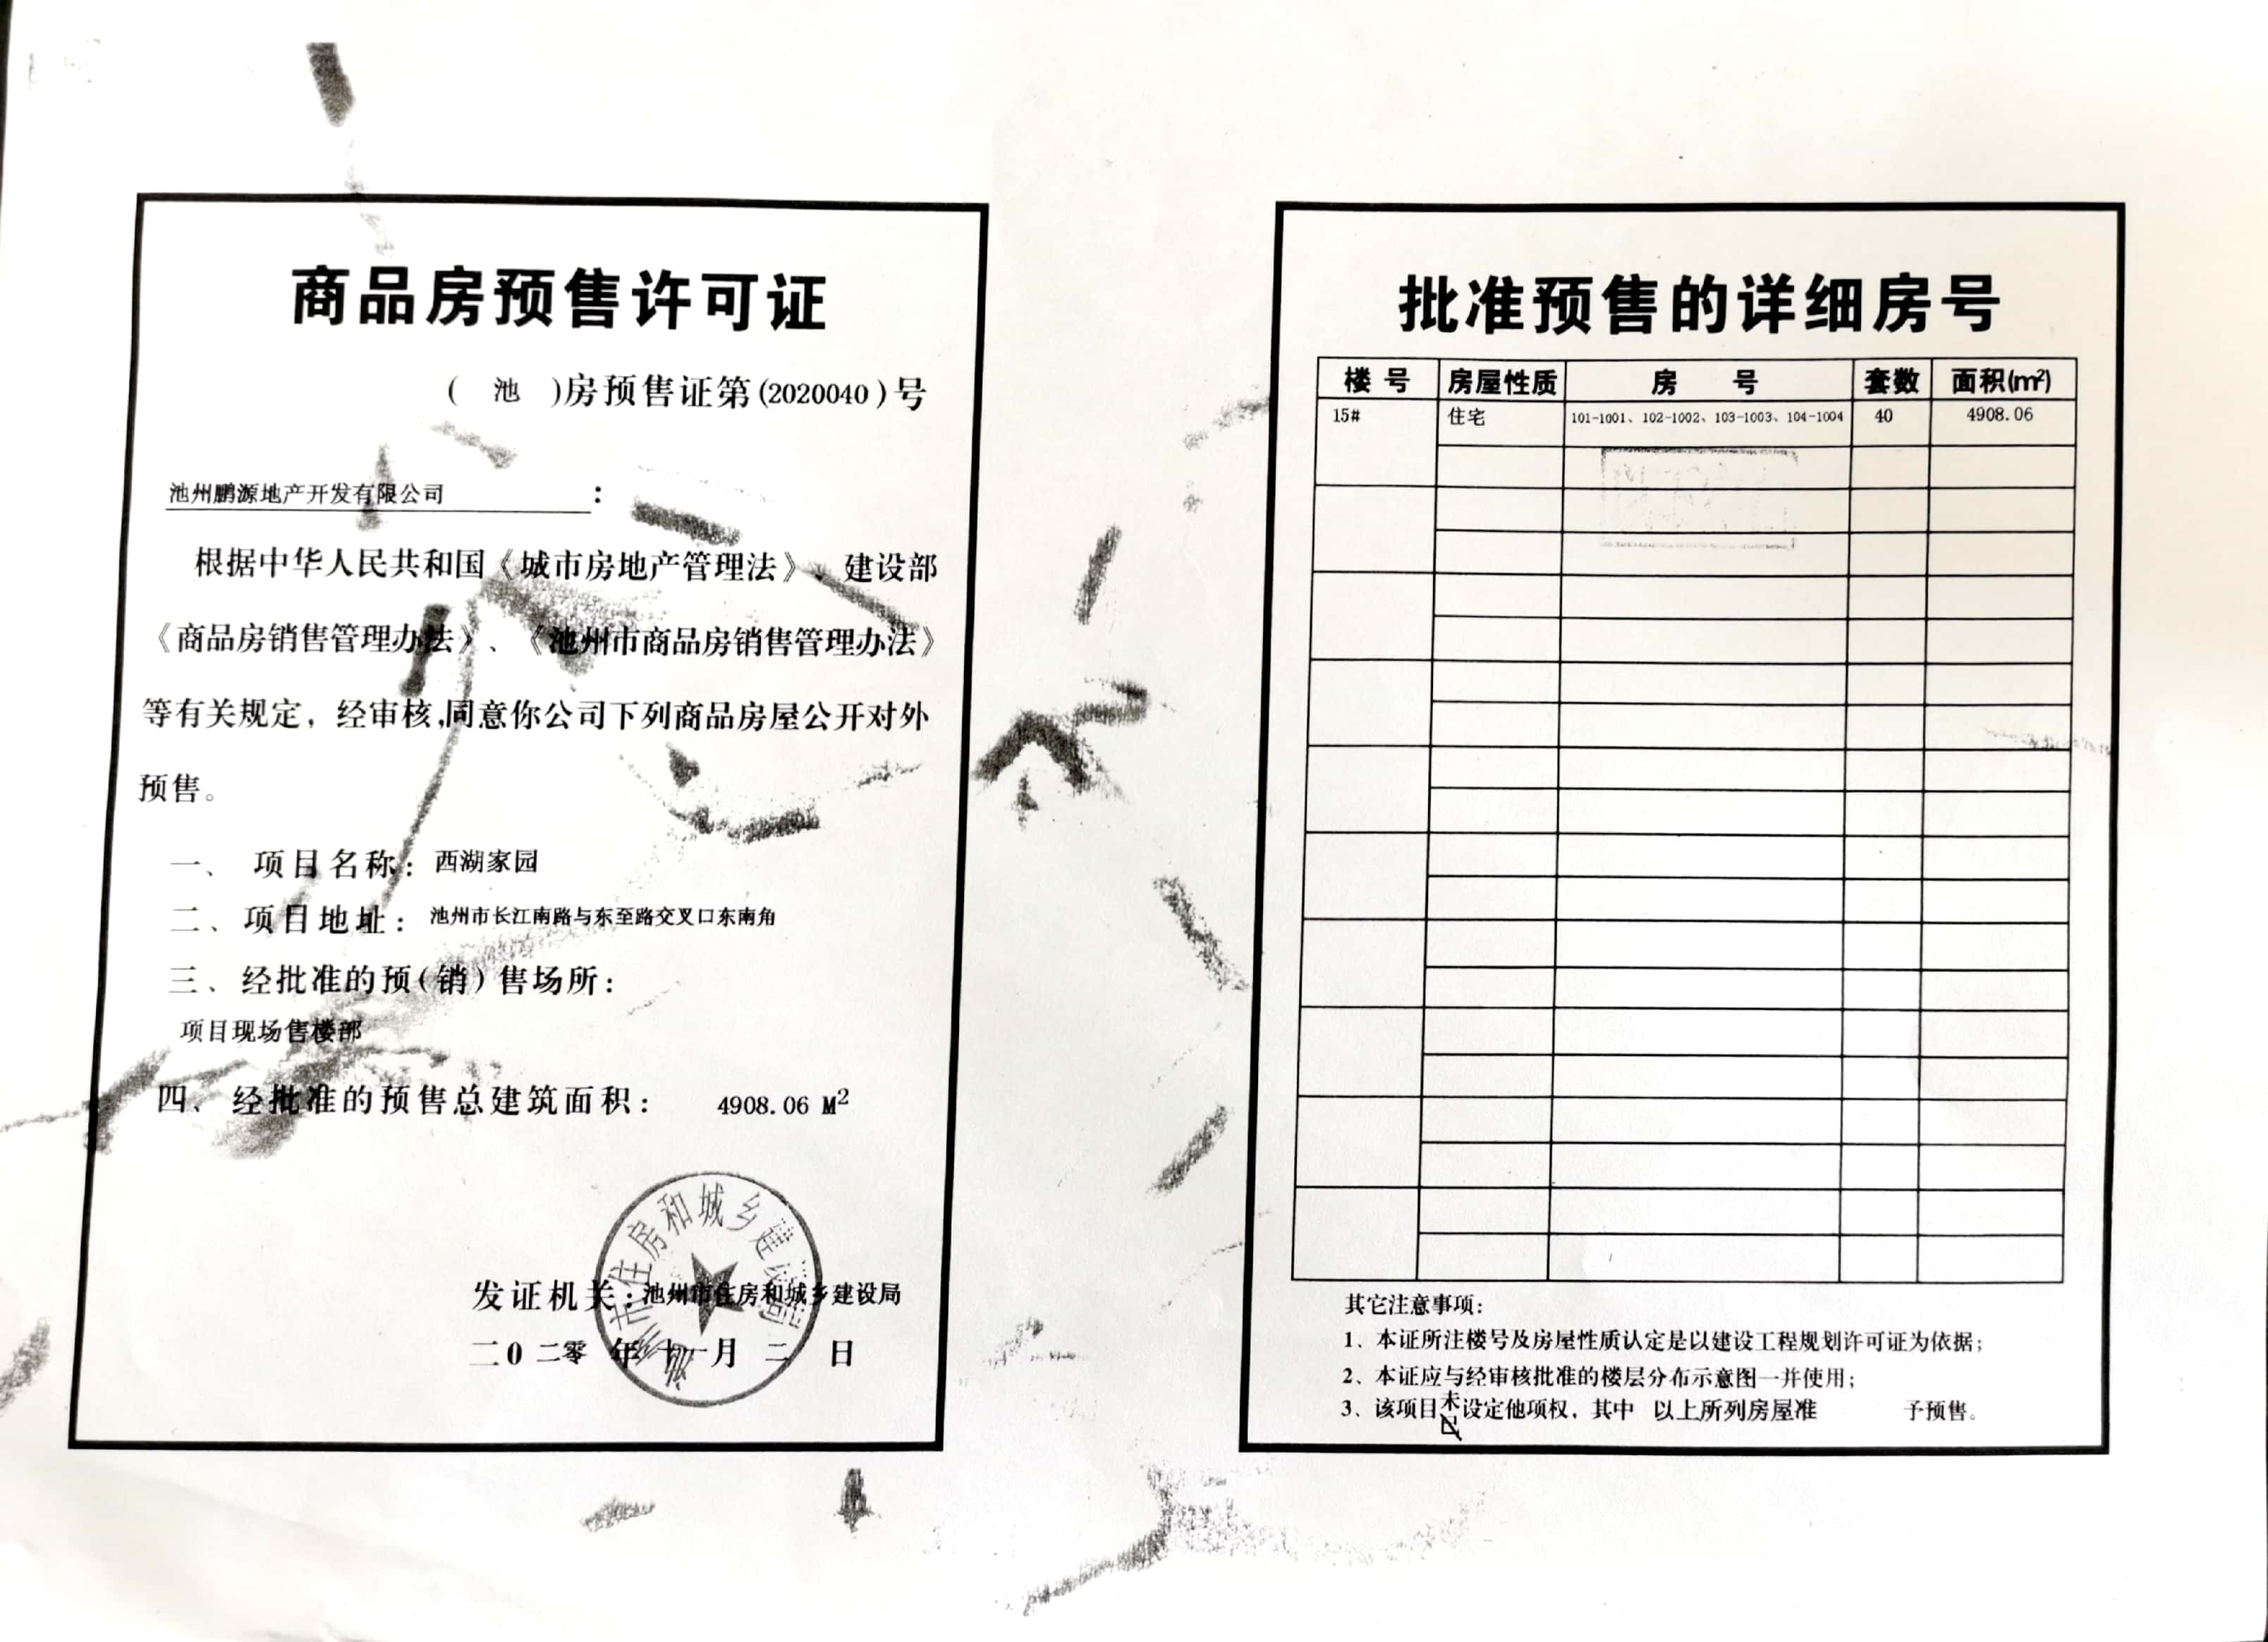 商品房预售许可证
( 池 )房预售证第(2020040)号
池州鹏源地产开发有限公司:
根据中华人民共和国《城市房地产管理法》、建设部
《商品房销售管理办法》、《池州市商品房销售管理办法》
等有关规定,经审核,同意你公司下列商品房屋公开对外
预售。
一、 项目名称: 西湖家园
二、项目地址: 池州市长江南路与东至路交叉口东南角
三、经批准的预(销)售场所:
项目现场售楼部
四、经批准的预售总建筑面积: 4908.06 M²
发证机关: 池州市住房和城乡建设局
二0二零 年十一月 二 日
池州市住房和城乡建设局
批准预售的详细房号
楼号 房屋性质 房 号 套数 面积(m²)
15# 住宅 101-1001、102-1002、103-1003、104-1004 40 4908.06
其它注意事项:
1、本证所注楼号及房屋性质认定是以建设工程规划许可证为依据;
2、本证应与经审核批准的楼层分布示意图一并使用;
3、该项目未已设定他项权,其中 以上所列房屋准 予预售。